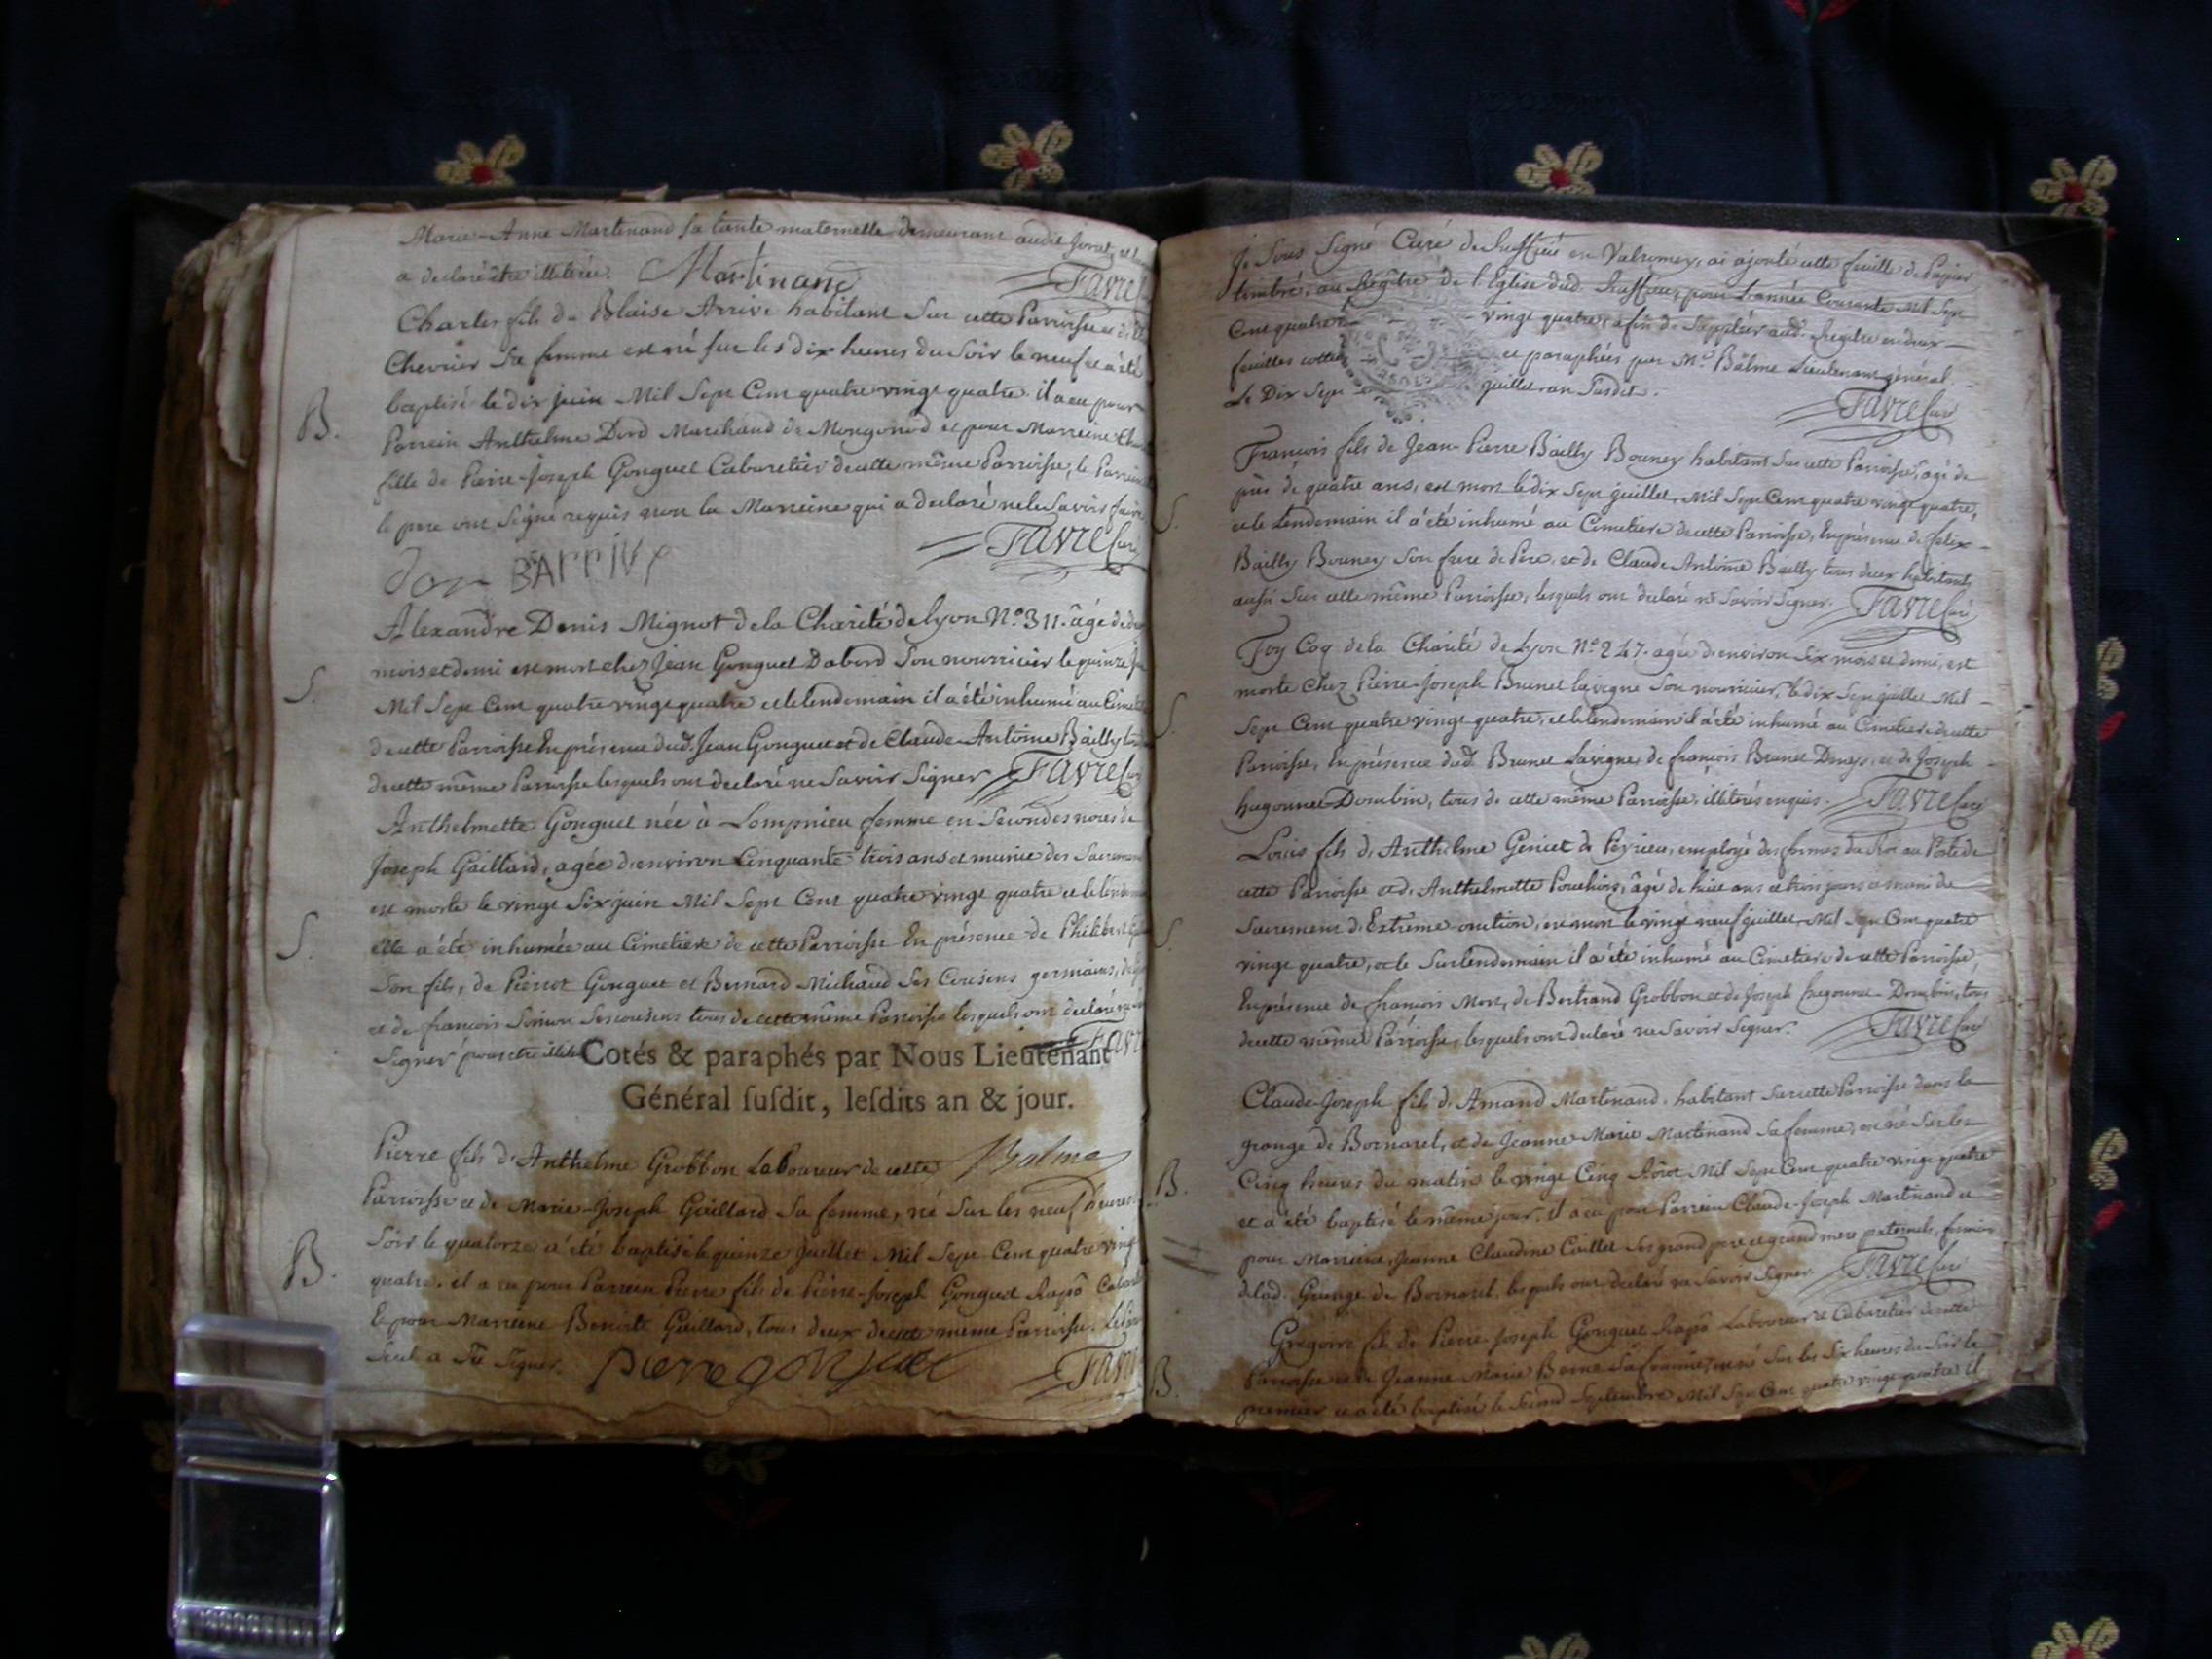 Marie-Anne Martinand sa tante maternelle demeurant audit
a declaré être illiterée. Martinand Favre
Charles fils de Blaise Arrive habitant sur cette Parroisse et de
Chevrier sa femme est né sur les dix heures du soir le neuf et a été
B.
baptisé le dix juin Mil Sept Cent quatre vingt quatre. il a eu pour
Parrein Anthelme Dord Marchand de Mongonod et pour Marreine
fille de Pierre-Joseph Gonguet Cabaretier de cette même Parroisse, le Parrein
le pere ont signé requis non la Marreine qui a declaré ne le savoir faire
Dor BArrive Favre Curé
Alexandre Denis Mignot de la Charité de Lyon N.o 311. âgé de
S.
mois et demi est mort chez Jean Gonguet Dabord son nourricier le quinze
Mil Sept Cent quatre vingt quatre et le lendemain il a été inhumé au
de cette Parroisse En présence dud. Jean Gonguet et de Claude-Antoine Bailly
de cette même Parroisse lesquels ont declaré ne savoir signer Favre
Anthelmette Gonguet née à Lompnieu femme en secondes noces de
Joseph Gaillard, agée d'environ Cinquante trois ans et munie des
est morte le vingt Six juin Mil Sept Cent quatre vingt quatre et le
S.
elle a été inhumée au Cimetiere de cette Parroisse En présence de Philibert
son fils, de Pierrot Gonguet et Bernard Michaud ses Cousins germains,
et de françois ses cousins tous de cette même Parroisse lesquels ont declaré
signer pour être Favre
Cotés & paraphés par Nous Lieutenant
Général ſuſdit, leſdits an & jour.
Pierre fils d'Anthelme Grobbon Laboureur de cette Balme
Parroisse et de Marie-Joseph Gaillard sa femme, né sur les neuf heures
Soir le quatorze a été baptisé le quinze Juillet Mil Sept Cent quatre vingt
B.
quatre. il a eu pour Parrein Pierre fils de Pierre-Joseph Gonguet Rapô
Et pour Marreine Benoite Gaillard, tous deux de cette meme Parroisse.
Seul a sû signer. pierre gonguet Favre
Je Sous Signé Curé de Ruffieu en Valromey, ai ajouté cette feuille de Papier
timbré, au Régître de l'Eglise dud. Ruffieu, pour l'année Courante Mil Sept
Cent quatre - vingt quatre, afin de suppléer aud. Regître en deux
feuilles cottées et paraphées par Mr. Balme Lieutenant général
Le Dix Sept juillet an susdit.
Favre Curé
François fils de Jean-Pierre Bailly Bouney habitant sur cette Parroisse, agé de
près de quatre ans, est mort le dix Sept juillet, Mil Sept Cent quatre vingt quatre,
S.
et le Lendemain il a été inhumé au Cimetiere de cette Parroisse, En présence de felix
Bailly Bouney son frere de Pere, et de Claude Antoine Bailly tous deux habitants
aussi sur cette même Parroisse, lesquels ont declaré ne savoir signer. Favre Curé
Foy Coq de la Charité de Lyon No 247. agée d'environ six mois et demi, est
morte chez Pierre-Joseph Brunet Lavigne son nourricier, le dix Sept juillet Mil
S.
Sept Cent quatre vingt quatre, et le lendemain il a été inhumé au Cimetiere de cette
Parroisse, En présence dud. Brunet Lavigne, de françois Brunet et de Joseph
hugonnet-Dombin, tous de cette même Parroisse, illiterés enquis. Favre Curé
Louis fils d'Anthelme Geniet de Peyrieu, employé des fermes du Roi au Poste de
cette Parroisse et d'Anthelmette âgé de huit ans et trois jours et muni du
S.
Sacrement d'Extrême-onction, est mort le vingt neuf juillet Mil Sept Cent quatre
vingt quatre, et le Surlendemain il a été inhumé au Cimetiere de cette Parroisse,
En présence de françois Mon, de Bertrand Grobbon et de Joseph hugonnet-Dombin, tous
de cette même Parroisse, lesquels ont declaré ne savoir signer. Favre Curé
Claude-Joseph fils d'Amand Martinand, habitant sur cette Parroisse dans la
grange de Bornarel, et de Jeanne-Marie Martinand sa femme, est né sur les
B.
Cinq heures du matin le vingt Cinq Aout Mil Sept Cent quatre vingt quatre
et a été baptisé le même jour. il a eu pour Parrein Claude-Joseph Martinand et
pour Marreine, Jeanne Claudine Caillet ses grand pere et grand mere paternels, fermiers
de lad. Grange de Bornarel, lesquels ont declaré ne savoir signer Favre Curé
Gregoire fils de Pierre-Joseph Gonguet Rapô Laboureur et Cabaretier de cette
B.
Parroisse et de Jeanne Marie Berne sa femme, est né sur les Six heures du Soir le
premier et a été baptisé le second Septembre Mil Sept Cent quatre vingt quatre il